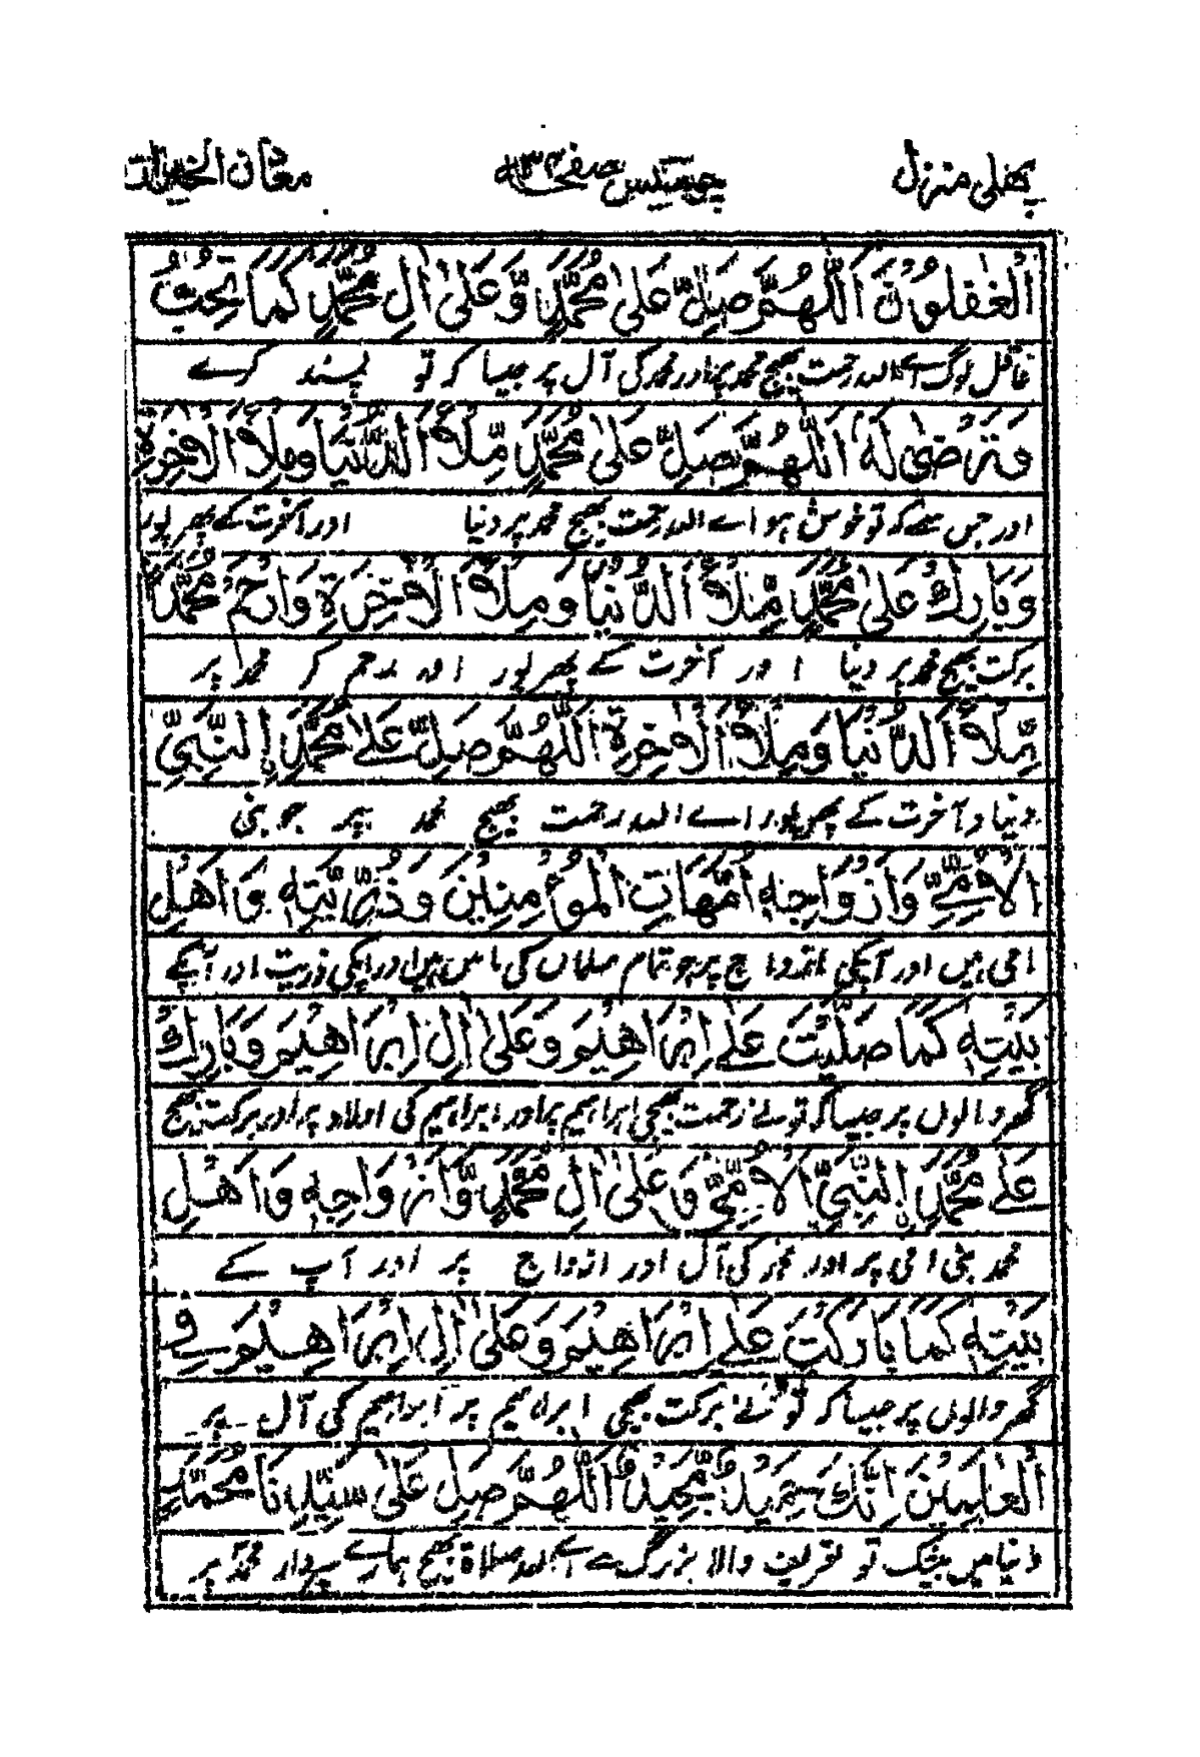 پہلی منزل چونتیس صفحہ ۳۴ معدن الخیرات
الْغٰفِلُوْنَ اَللّٰهُمَّ صَلِّ عَلٰى مُحَمَّدٍ وَّعَلٰى اٰلِ مُحَمَّدٍ كَمَا تُحِبُّ
غافل لوگ اے اللہ رحمت بھیج محمد پر اور محمد کی آل پر جیسا کہ تو پسند کرے
وَتَرْضٰى لَهٗ اَللّٰهُمَّ صَلِّ عَلٰى مُحَمَّدٍ مِّلْأَ الدُّنْيَا وَمِلْأَ الْاٰخِرَةِ
اور جس سے کہ تو خوش ہو اے اللہ رحمت بھیج محمد پر دنیا اور آخرت کے بھرپور
وَبَارِكْ عَلٰى مُحَمَّدٍ مِّلْأَ الدُّنْيَا وَمِلْأَ الْاٰخِرَةِ وَارْحَمْ مُحَمَّدًا
برکت بھیج محمد پر دنیا اور آخرت کے بھرپور اور رحم کر محمد پر
مِّلْأَ الدُّنْيَا وَمِلْأَ الْاٰخِرَةِ اَللّٰهُمَّ صَلِّ عَلٰى مُحَمَّدِ ࣙالنَّبِيِّ
دنیا و آخرت کے بھرپور اے اللہ رحمت بھیج محمد پر جو نبی
الْاُمِّيِّ وَاَزْوَاجِهٖ اُمَّهَاتِ الْمُؤْمِنِيْنَ وَذُرِّيَّتِهٖ وَاَهْلِ
امی ہیں اور آپکی ازواج پر جو تمام مسلماں کی مائیں ہیں اور آپکی ذریت اور آپکے
بَيْتِهٖ كَمَا صَلَّيْتَ عَلٰى اِبْرَاهِيْمَ وَعَلٰى اٰلِ اِبْرَاهِيْمَ وَبَارِكْ
گھر والوں پر جیسا کہ تونے رحمت بھیجی ابراہیم پر اور ابراہیم کی اولاد پر اور برکت بھیج
عَلٰى مُحَمَّدِ ࣙالنَّبِيِّ الْاُمِّيِّ وَعَلٰى اٰلِ مُحَمَّدٍ وَّاَزْوَاجِهٖ وَاَهْلِ
محمد نبی امی پر اور محمد کی آل اور ازواج پر اور آپ کے
بَيْتِهٖ كَمَا بَارَكْتَ عَلٰى اِبْرَاهِيْمَ وَعَلٰى اٰلِ اِبْرَاهِيْمَ فِي
گھر والوں پر جیسا کہ تونے برکت بھیجی ابراہیم پر ابراہیم کی آل پر
الْعٰلَمِيْنَ اِنَّكَ حَمِيْدٌ مَّجِيْدٌ اَللّٰهُمَّ صَلِّ عَلٰى سَيِّدِنَا مُحَمَّدٍ
دنیا میں بیشک تو تعریف والا بزرگ ہے اے اللہ صلاۃ بھیج ہمارے سردار محمد پر